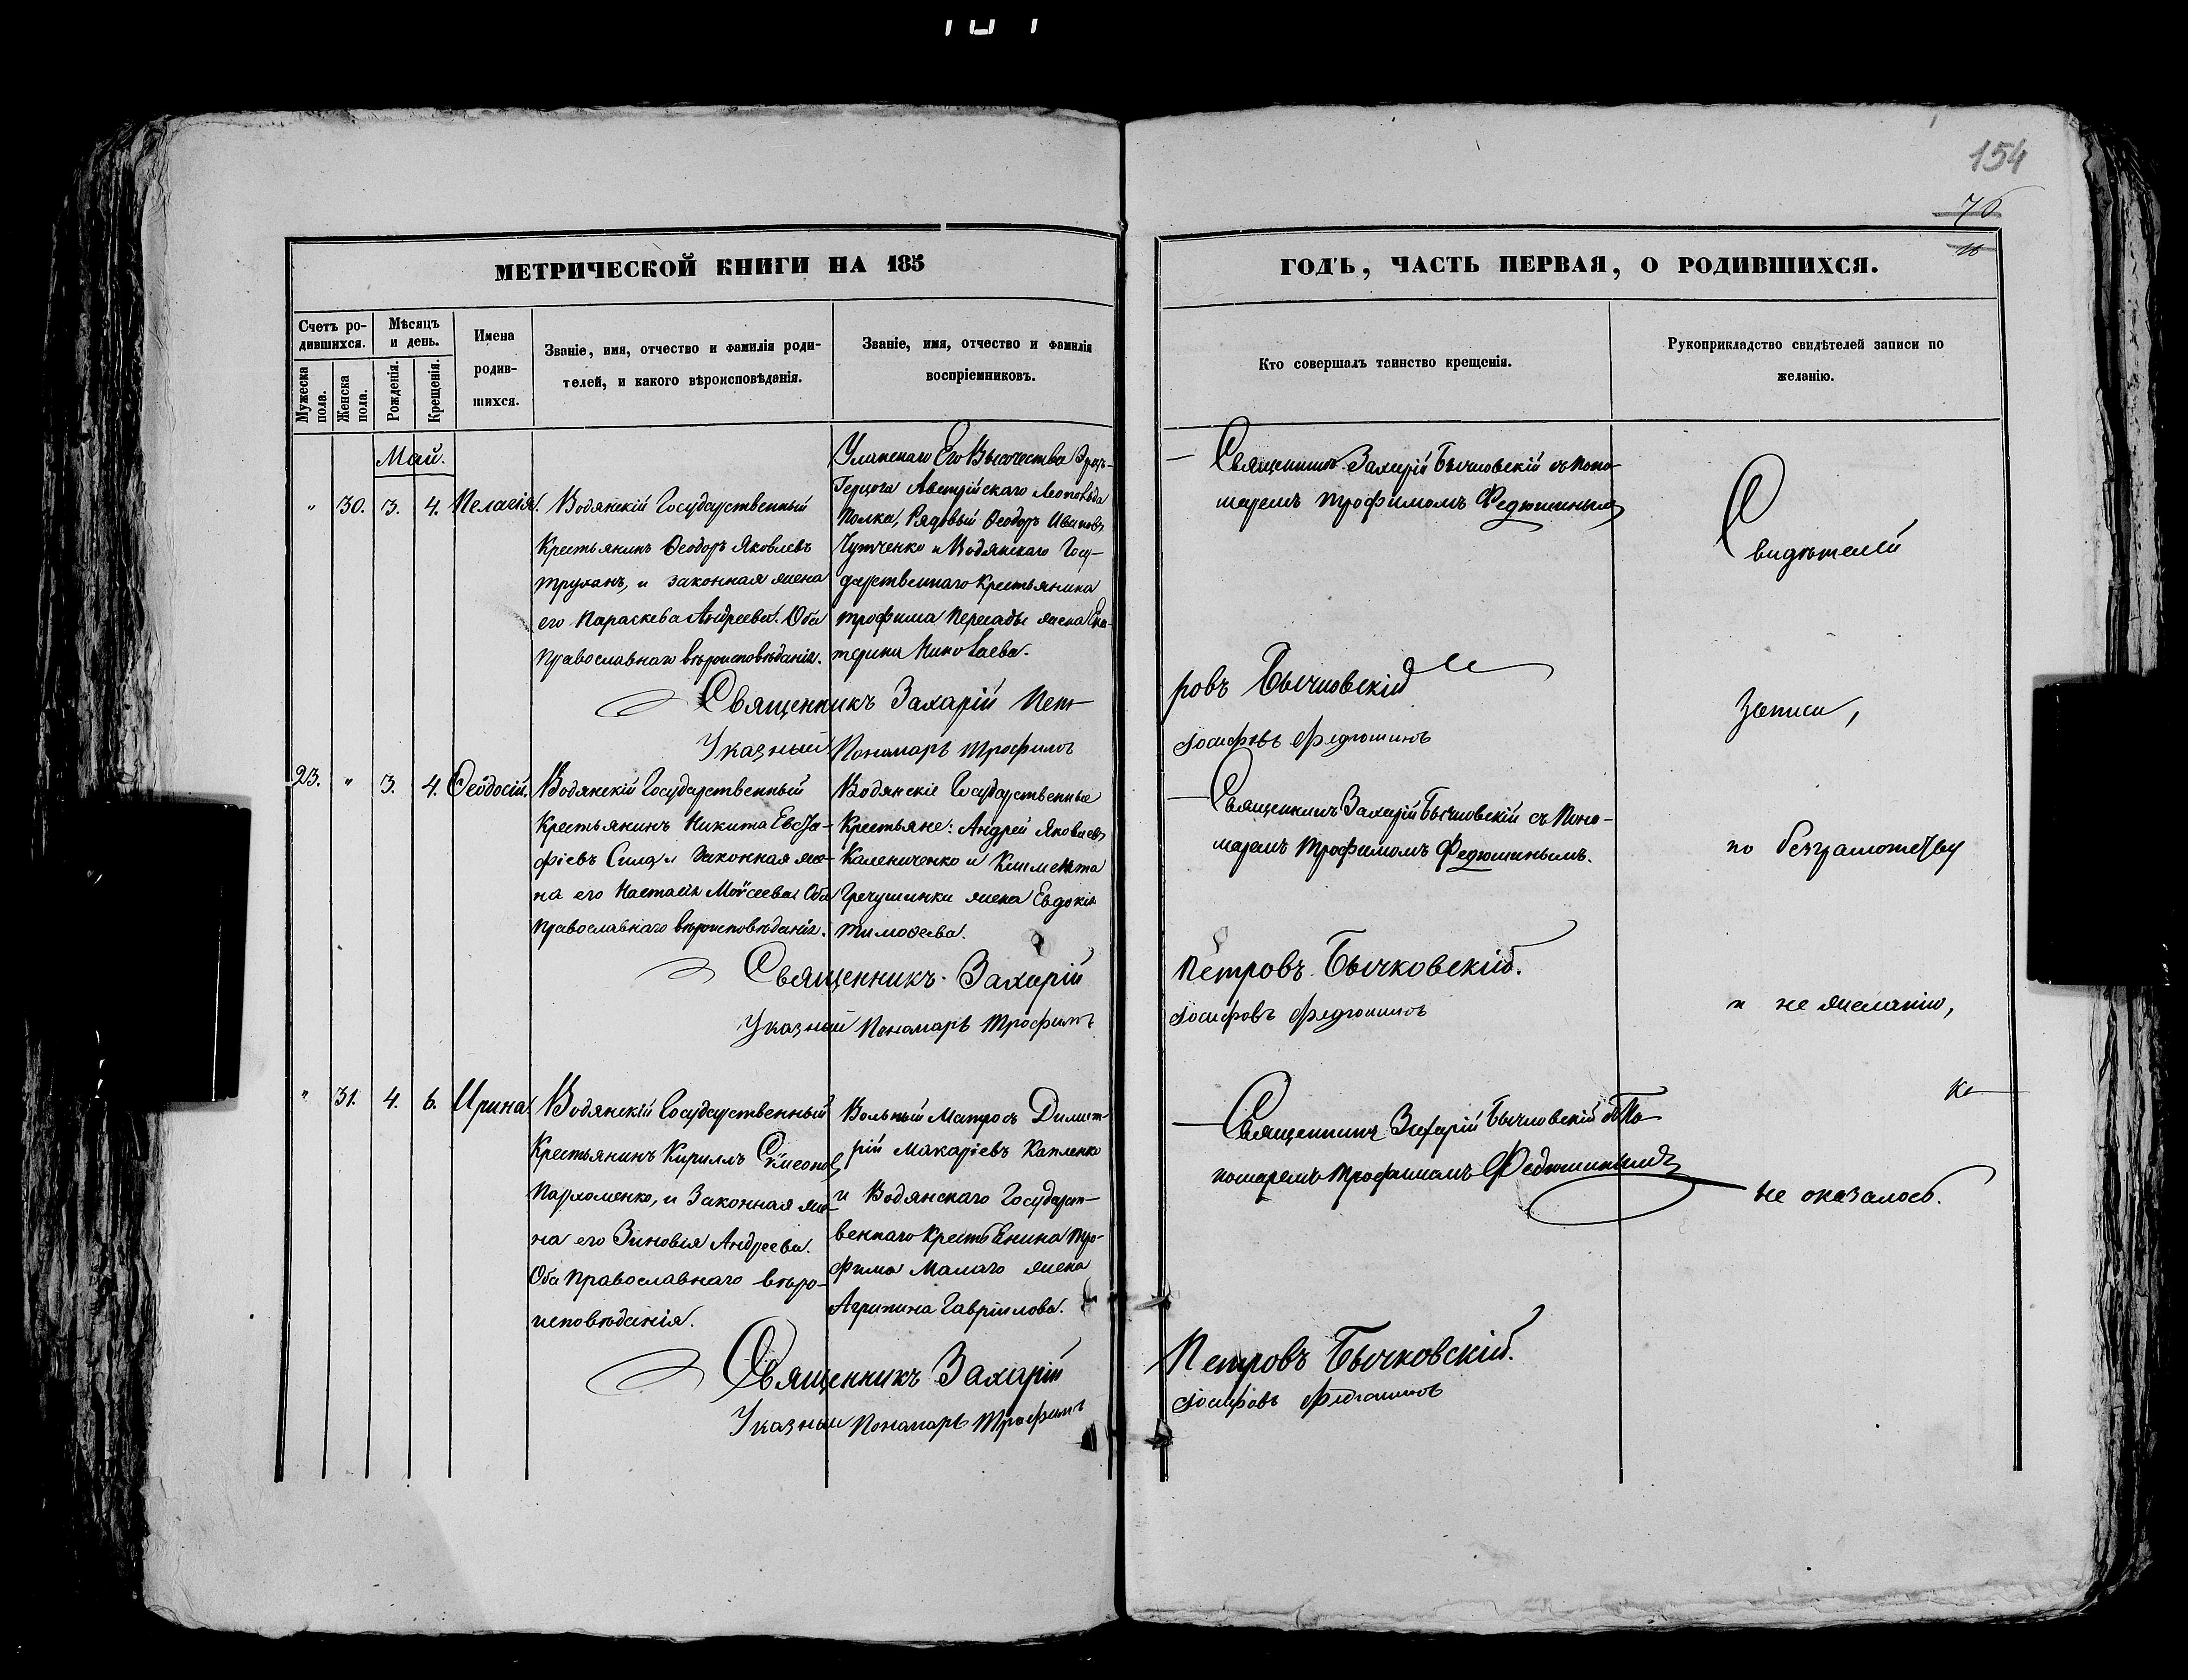 154
76
МЕТРИЧЕСКОЙ КНИГИ НА 185
ГОДЪ, ЧАСТЬ ПЕРВАЯ, О РОДИВШИХСЯ.
Счетъ ро-
дившихся.
Мужеска пола.
Женска пола.
Мѣсяцъ
и день.
Рожденія.
Крещенія.
Имена
родив-
шихся.
Званіе, имя, отчество и фамилія роди-
телей, и какого вѣроисповѣданія.
Званіе, имя, отчество и фамилія
воспріемниковъ.
Кто совершалъ таинство крещенія.
Рукоприкладство свидѣтелей записи по
желанію.
Май.
" 30. 3. 4. Пелагія.
Водянскій Государственный
Крестьянинъ Ѳеодоръ Яковлевъ
Труханъ, и законная жена
его Параскева Андреева. Оба
Православнаго вѣроисповѣданія.
Уланскаго Его Высочества Эрцъ-
Герцога Австрійскаго Леопольда
Полка, Рядовый Ѳеодоръ Ивановъ
Чутченко и Водянскаго Госу-
дарственнаго Крестьянина
Трофима жена Ека-
терина Николаева.
Священникъ Захарій Бычковскій съ Поно-
маремъ Трофимомъ Федюшинымъ
Священникъ Захарій Пет-
ровъ Бычковскій
Указный Пономарь Трофимъ
Іосифовъ Федюшинъ
23. " 3. 4. Ѳеодосій.
Водянскій Государственный
Крестьянинъ Никита Евста-
фіевъ и Законная же-
на его Настасія Моѵсеева Оба
Православнаго вѣроисповѣданія.
Водянскіе Государственные
Крестьяне: Андрей Яковлевъ
Калениченко и Климента
Гречушинки жена Евдокія
Тимоѳеева.
Священникъ Захарій Бычковскій съ Поно-
маремъ Трофимомъ Федюшинымъ.
Священникъ Захарій
Петровъ Бычковскій.
Указный Пономарь Трофимъ
Іосифовъ Федюшинъ
" 31. 4. 6. Ирина.
Водянскій Государственный
Крестьянинъ Кириллъ Сѵмеоновъ
Пархоменко, и Законная же-
на его Зиновія Андреева.
Оба Православнаго вѣро-
исповѣданія.
Вольный Матросъ Димит-
рій Макаріевъ Капленко
и Водянскаго Государст-
веннаго Крестьянина Тро-
фима Малаго жена
Агрипина Гавріилова.
Священникъ Захарій Бычковскій съ По-
номаремъ Трофимомъ Федюшинымъ
Священникъ Захарій
Петровъ Бычковскій.
Указный Пономарь Трофимъ
Іосифовъ Федюшинъ
Свидѣтелей
записи,
по безграмотству
и не желанію,
не оказалось.